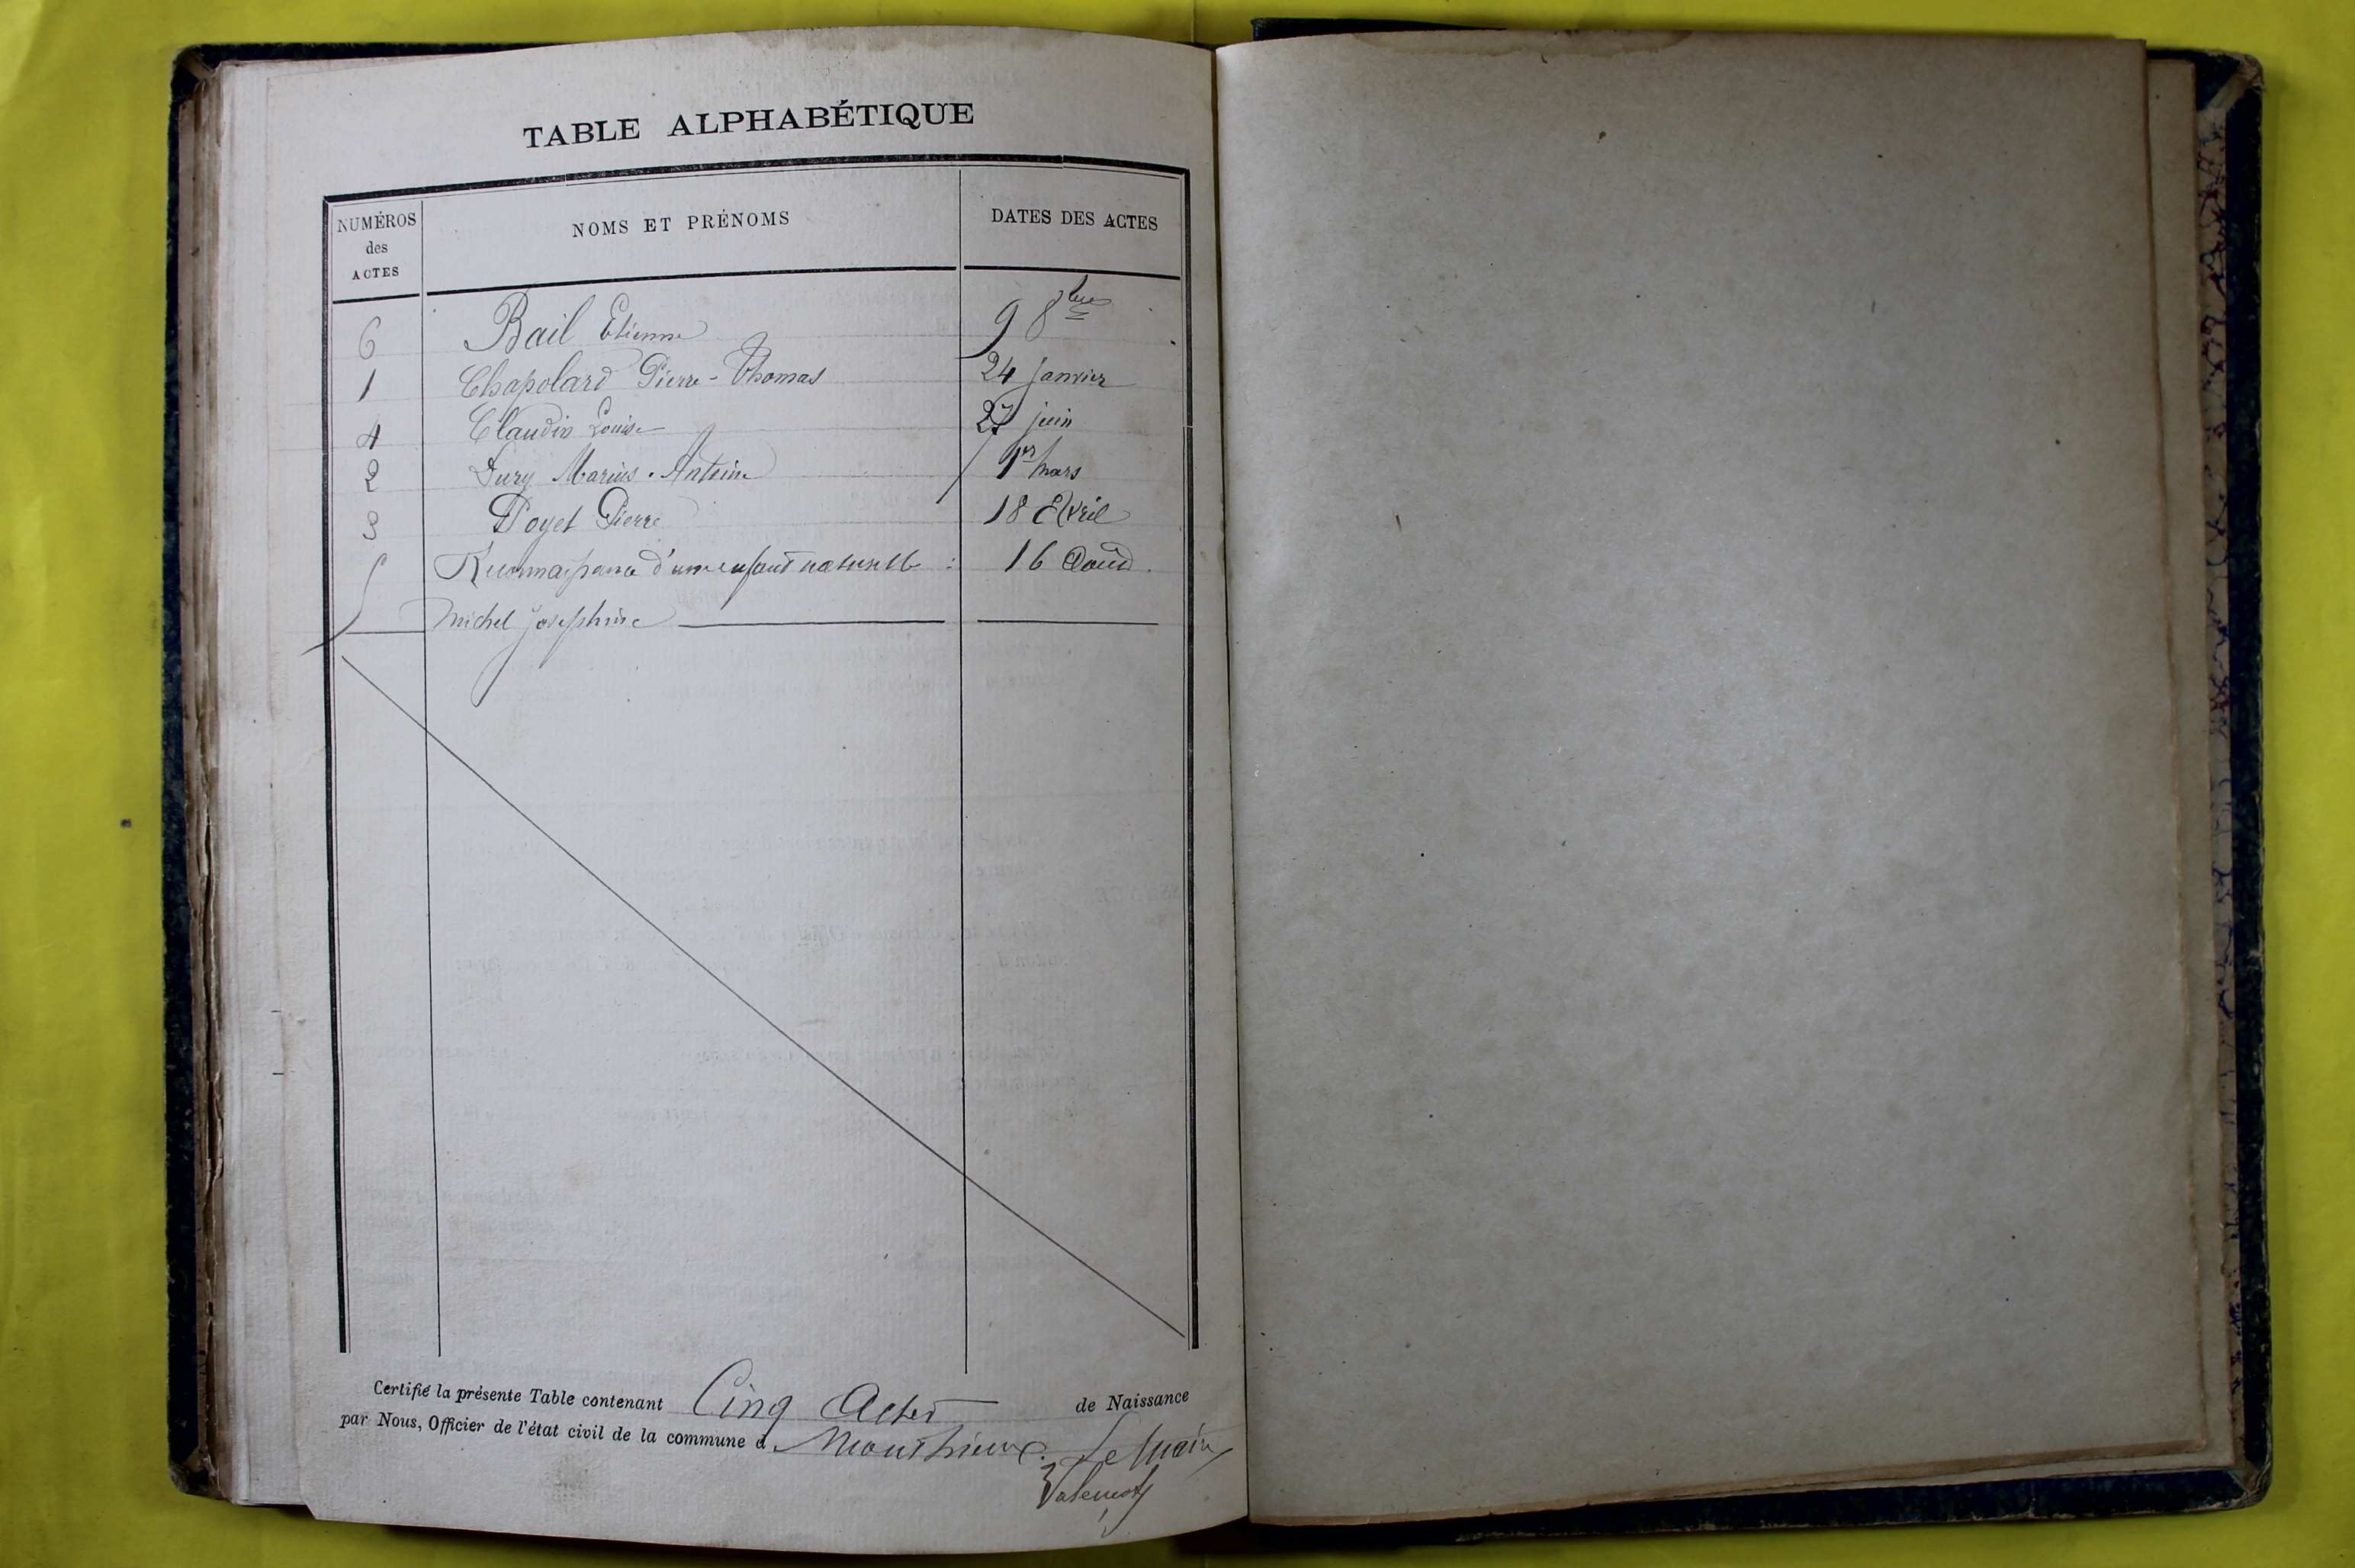 TABLE ALPHABÉTIQUE
NUMÉROS des ACTES NOMS ET PRÉNOMS DATES DES ACTES
6 Bail Etienne 9 8bre
1 Chapolard Pierre-Thomas 24 janvier
4 Claudin Louise 27 juin
2 Jury Marius-Antoine 1er mars
3 Poyet Pierre 18 Avril
5 Reconnaissance d'un enfant naturelle : 16 Août.
Michel Josephine
Certifié la présente Table contenant Cinq Actes de Naissance
par Nous, Officier de l'état civil de la commune d Monthieux. Le Maire